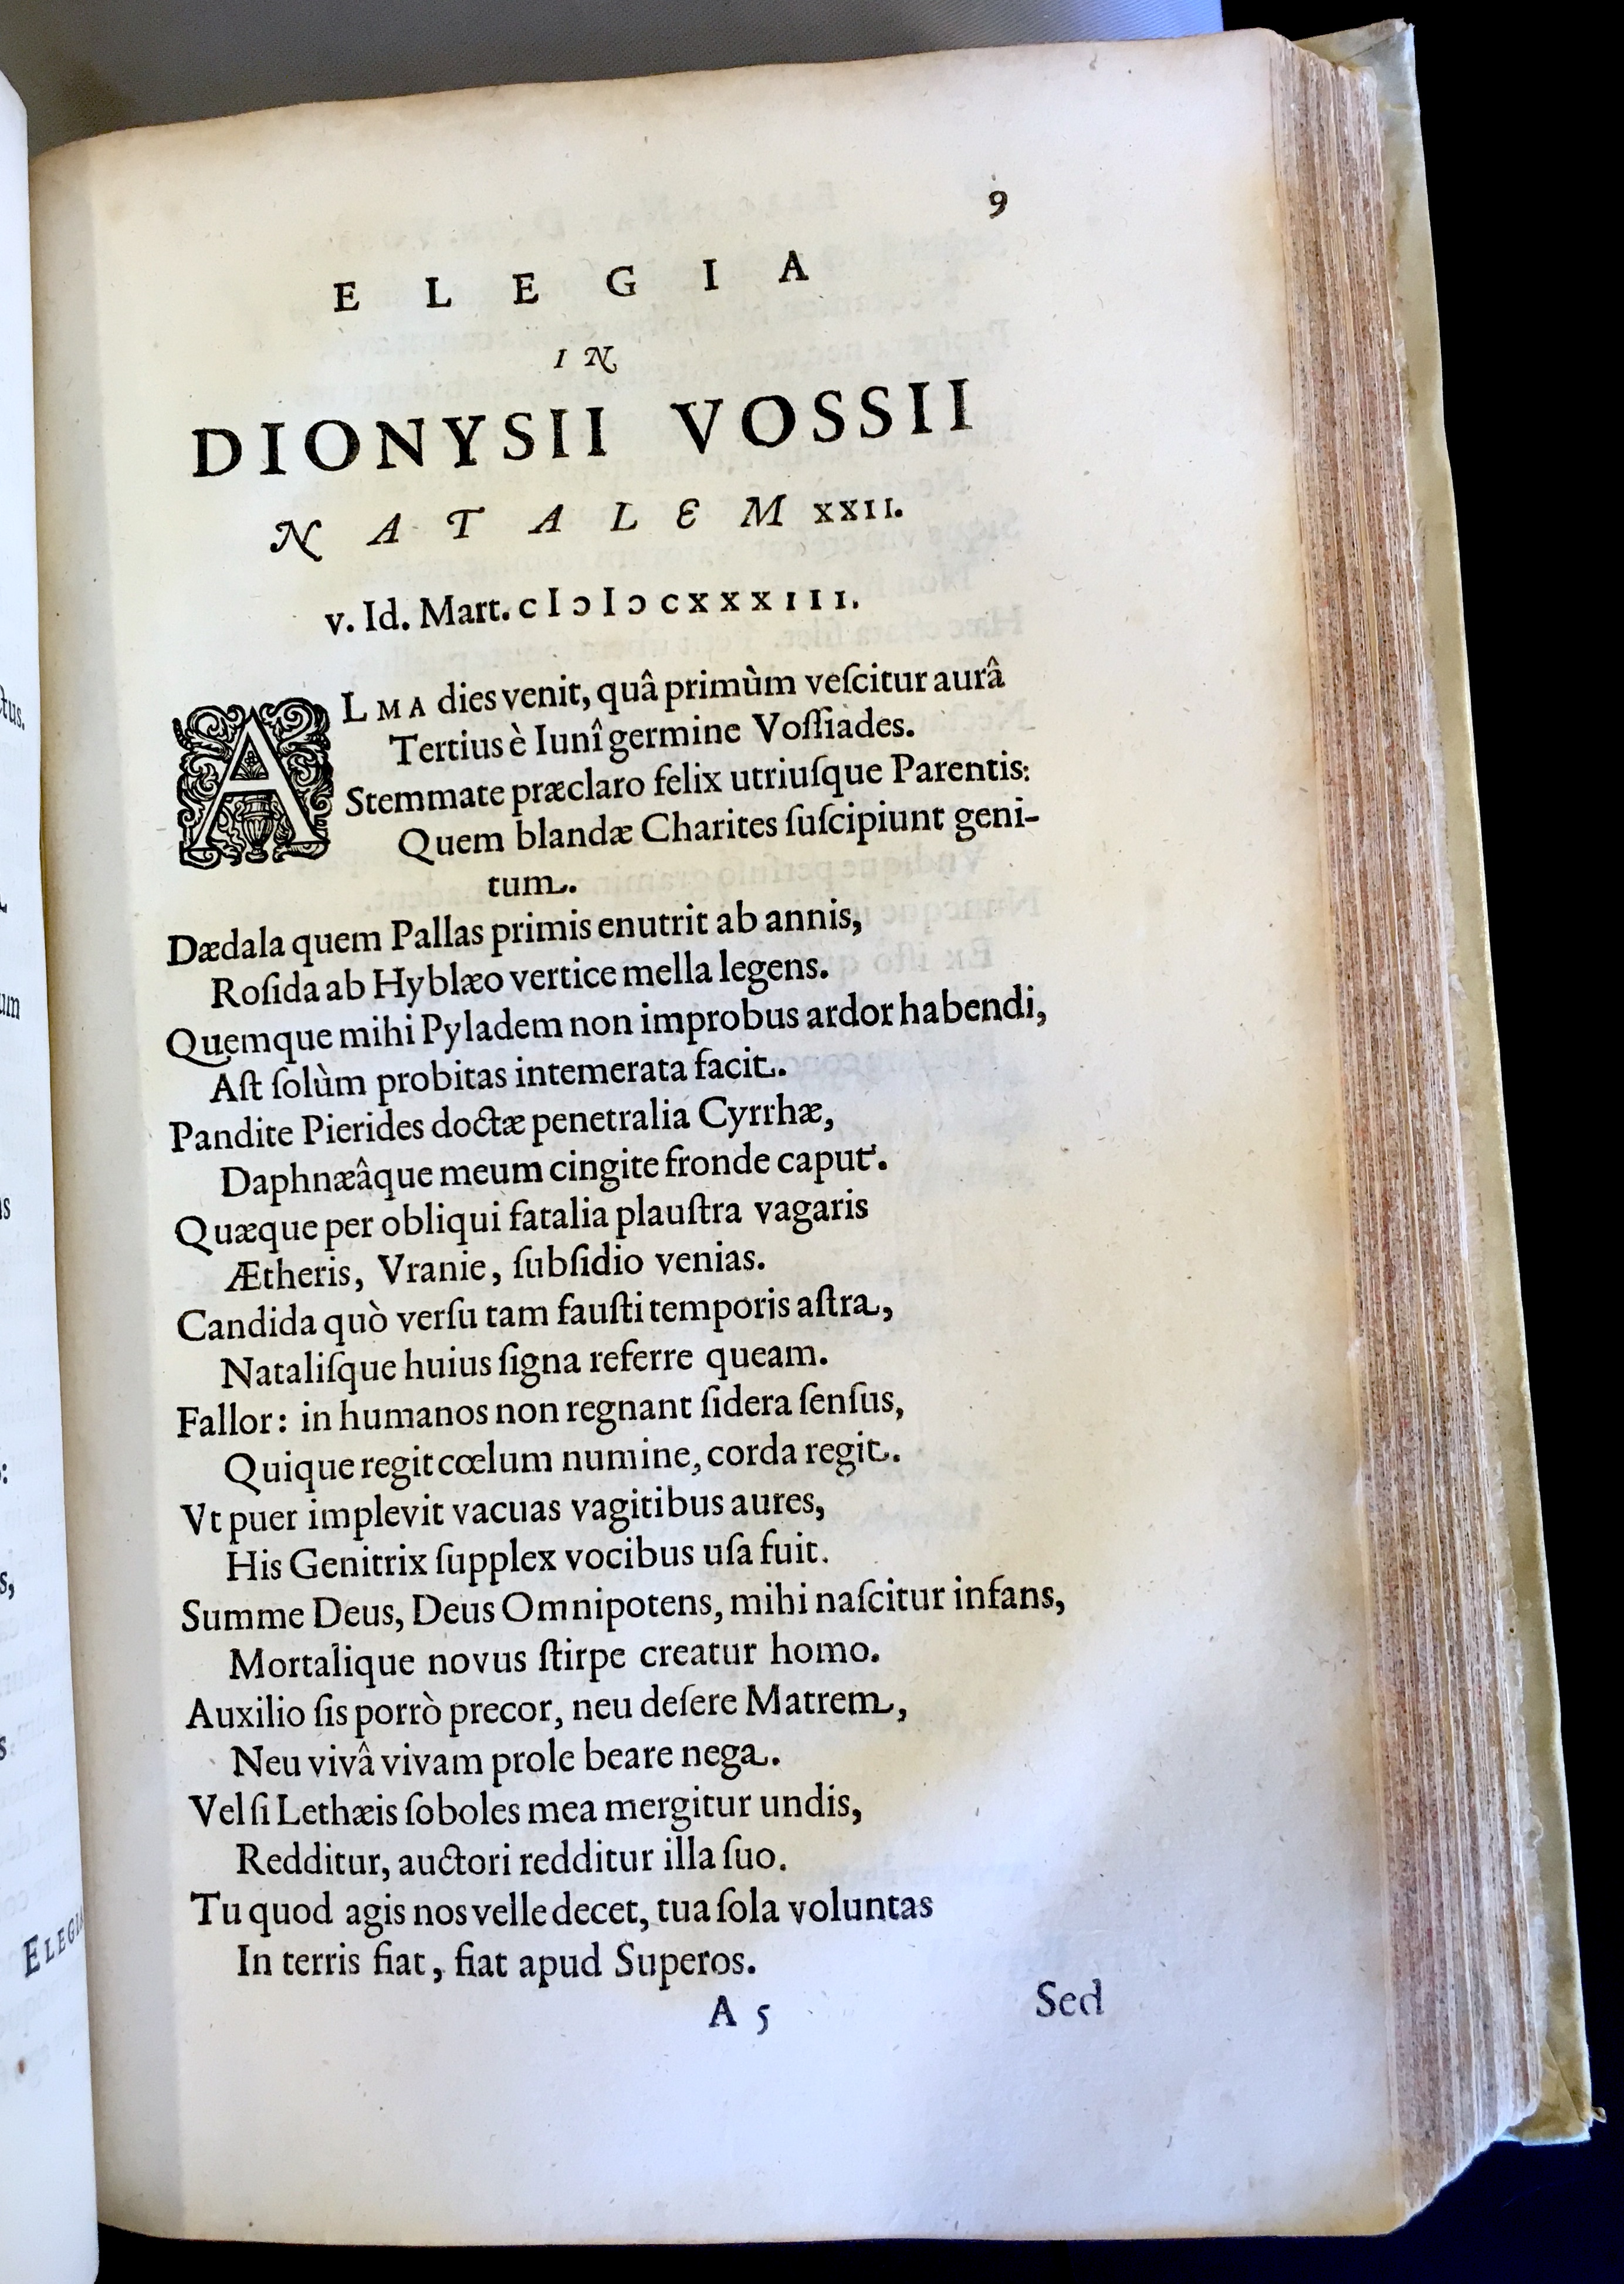 9
ELEGIA
IN
DIONYSII VOSSII
NATALEM XXII.
v. Id. Mart. cIↄIↄcxxxIII.
ALMA dies venit, quâ primùm veſcitur aurâ
Tertius è Iunî germine Voſſiades.
Stemmate præclaro felix utriuſque Parentis:
Quem blandæ Charites ſuſcipiunt geni-
tum.
Dædala quem Pallas primis enutrit ab annis,
Roſida ab Hyblæo vertice mella legens.
Quemque mihi Pyladem non improbus ardor habendi,
Aſt ſolùm probitas intemerata facit.
Pandite Pierides doctæ penetralia Cyrrhæ,
Daphnæâque meum cingite fronde caput.
Quæque per obliqui fatalia plauſtra vagaris
Ætheris, Vranie, ſubſidio venias.
Candida quò verſu tam fauſti temporis aſtra,
Nataliſque huius ſigna referre queam.
Fallor: in humanos non regnant ſidera ſenſus,
Quique regit cœlum numine, corda regit.
Vt puer implevit vacuas vagitibus aures,
His Genitrix ſupplex vocibus uſa fuit.
Summe Deus, Deus Omnipotens, mihi naſcitur infans,
Mortalique novus ſtirpe creatur homo.
Auxilio ſis porrò precor, neu deſere Matrem,
Neu vivâ vivam prole beare nega.
Vel ſi Lethæis ſoboles mea mergitur undis,
Redditur, auctori redditur illa ſuo.
Tu quod agis nos velle decet, tua ſola voluntas
In terris fiat, fiat apud Superos.
A 5
Sed
tus.
um
s,
ELEGIA